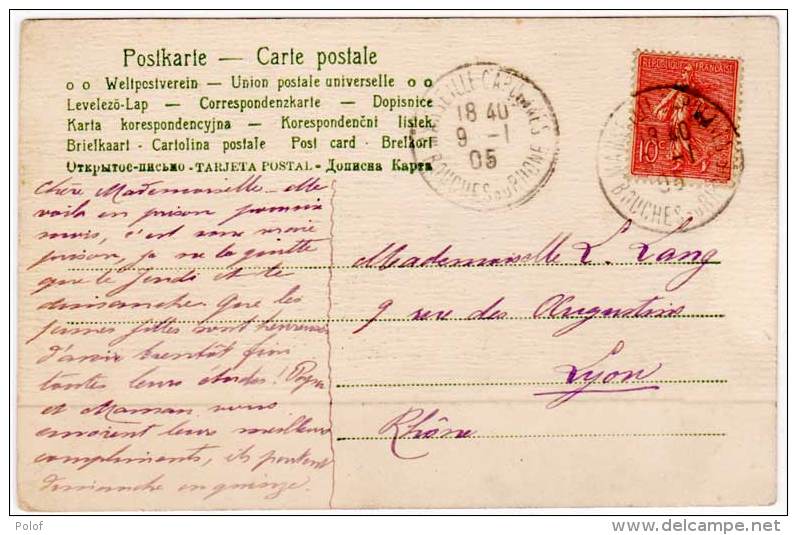 Postkarte — Carte postale
o o Weltpostverein — Union postale universelle o o
Levelező-Lap — Correspondenzkarte — Dopisnice
Karta korespondencyjna — Korespondenční listek
Briefkaart - Cartolina postale Post card - Brefkort
Открытое-письмо - TARJETA POSTAL - Дописна Карта
MARSEILLE CAPUCINES
18 40
9 -1
05
BOUCHES DU RHONE
REPUBLIQUE FRANÇAISE
10c
BOUCHES DU
Chère Mademoiselle - Me
voilà en prison
mais, c'est une vraie
prison, je ne la quitte
que le Jeudi et le
dimanche. Que les
jeunes filles sont heureuses
d'avoir bientôt fini
toutes leurs études! Papa
et Maman vous
envoient leurs meilleurs
compliments, ils partent
dimanche en
Mademoiselle L. Lang
9 rue des Augustins
Lyon
Rhône
Polof
delcampe.net